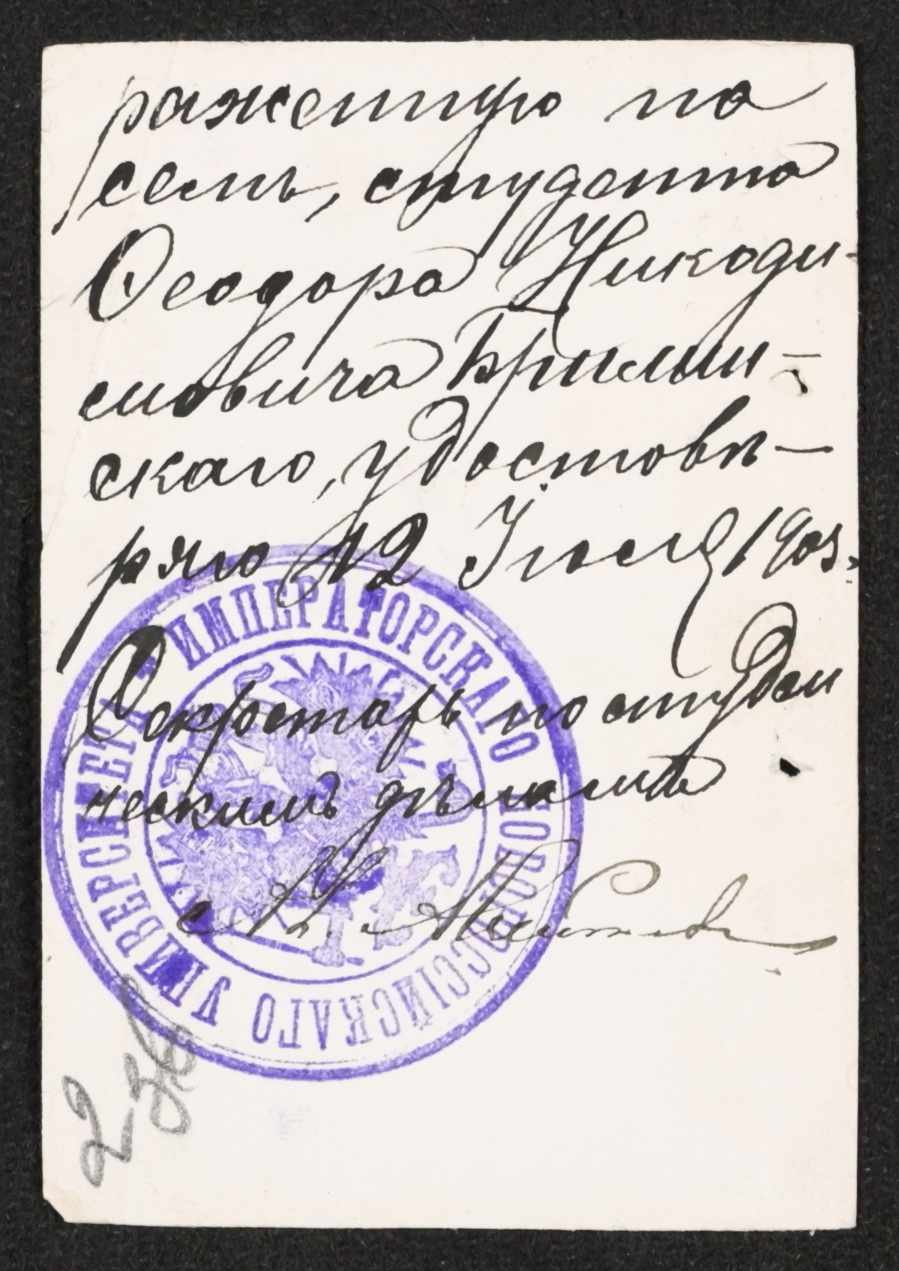 раженную на
семъ, студента
Ѳеодора Никоди-
мовича Брилин-
скаго, удостовѣ-
ряю 12 Іюля 1903.
Секретарь по студен
ческимъ дѣламъ
ИМПЕРАТОРСКАГО НОВОРОССІЙСКАГО УНИВЕРСИТЕТА